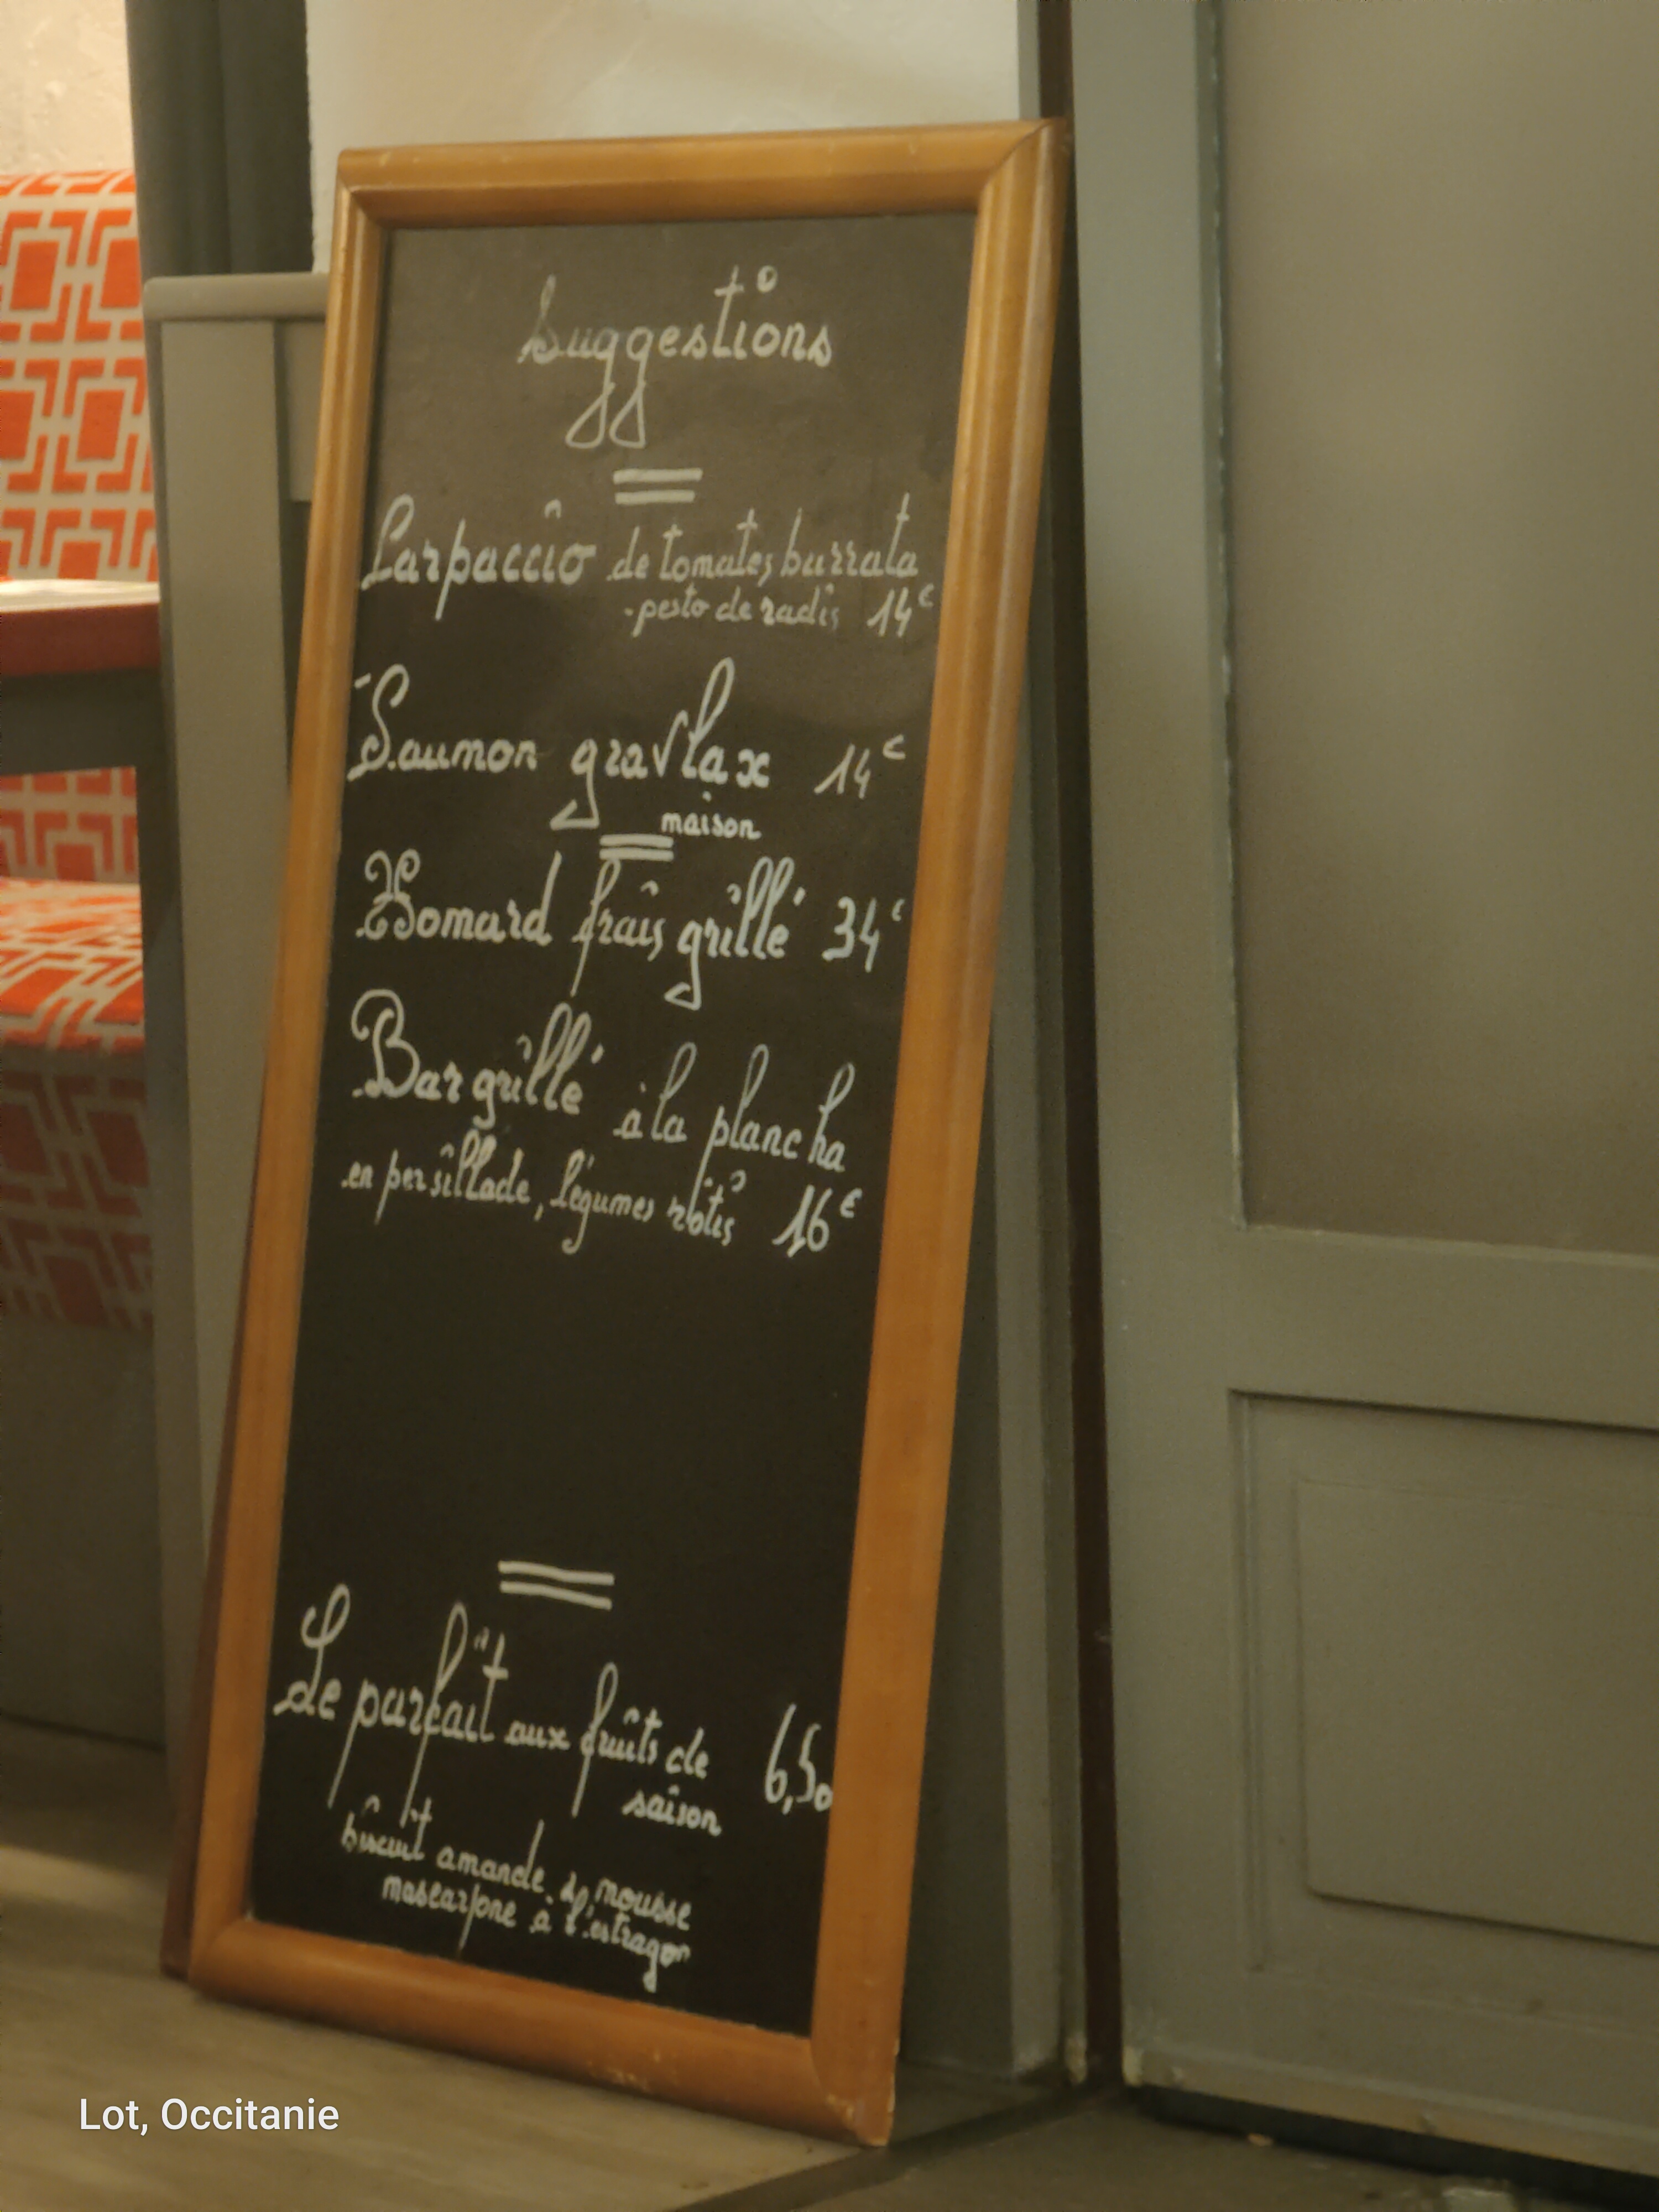 Suggestions
Carpaccio de tomates, burrata
pesto de radis 14€
Saumon gravlax 14€
maison
Homard frais grillé 34€
Bar grillé à la plancha
en persillade, légumes rôtis 16€
Le parfait aux fruits de 6,50
saison
biscuit amande, mousse
mascarpone à l'estragon
Lot, Occitanie